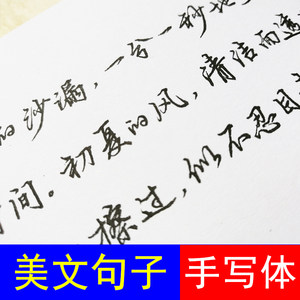 的沙漏，一分一秒地
时间。初夏的风，清洁而透
擦过，似不忍目
美文句子 手写体